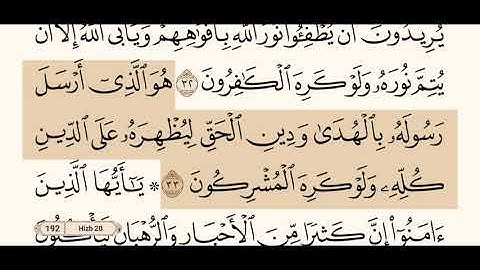 يُرِيدُونَ أَن يُطْفِـُٔوا۟ نُورَ ٱللَّهِ بِأَفْوَٰهِهِمْ وَيَأْبَى ٱللَّهُ إِلَّآ أَن
يُتِمَّ نُورَهُۥ وَلَوْ كَرِهَ ٱلْكَـٰفِرُونَ ٣٢ هُوَ ٱلَّذِىٓ أَرْسَلَ
رَسُولَهُۥ بِٱلْهُدَىٰ وَدِينِ ٱلْحَقِّ لِيُظْهِرَهُۥ عَلَى ٱلدِّينِ
كُلِّهِۦ وَلَوْ كَرِهَ ٱلْمُشْرِكُونَ ٣٣ ۞ يَـٰٓأَيُّهَا ٱلَّذِينَ
ءَامَنُوٓا۟ إِنَّ كَثِيرًا مِّنَ ٱلْأَحْبَارِ وَٱلرُّهْبَانِ لَيَأْكُلُونَ
192 Hizb 20